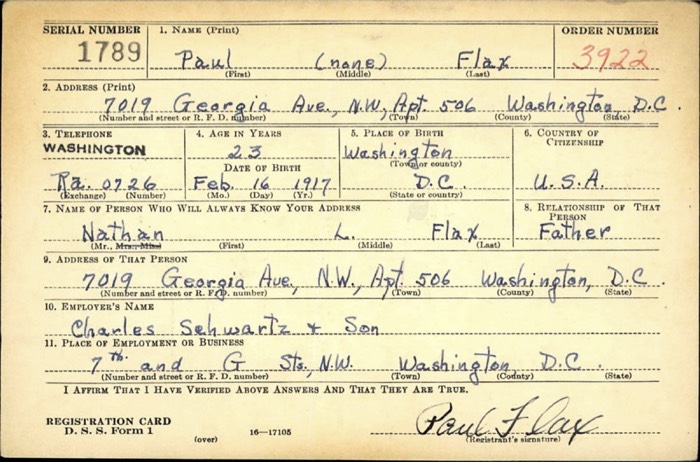 SERIAL NUMBER 1. NAME (Print) ORDER NUMBER
1789 Paul (none) Flax 3922
(First) (Middle) (Last)
2. ADDRESS (Print)
7019 Georgia Ave., N.W., Apt. 506 Washington D.C.
(Number and street or R. F. D. number) (Town) (County) (State)
3. TELEPHONE 4. AGE IN YEARS 5. PLACE OF BIRTH 6. COUNTRY OF CITIZENSHIP
WASHINGTON 23 Washington
(Town or county)
DATE OF BIRTH
Ra. 0726 Feb. 16 1917 D.C. U.S.A.
(Exchange) (Number) (Mo.) (Day) (Yr.) (State or country)
7. NAME OF PERSON WHO WILL ALWAYS KNOW YOUR ADDRESS 8. RELATIONSHIP OF THAT PERSON
Nathan L. Flax Father
(Mr., Mrs., Miss) (First) (Middle) (Last)
9. ADDRESS OF THAT PERSON
7019 Georgia Ave., N.W., Apt. 506 Washington, D.C.
(Number and street or R. F. D. number) (Town) (County) (State)
10. EMPLOYER'S NAME
Charles Schwartz + Son
11. PLACE OF EMPLOYMENT OR BUSINESS
7th and G Sts., N.W. Washington D.C.
(Number and street or R. F. D. number) (Town) (County) (State)
I AFFIRM THAT I HAVE VERIFIED ABOVE ANSWERS AND THAT THEY ARE TRUE.
REGISTRATION CARD
D. S. S. Form 1 (over) 16—17105 Paul Flax
(Registrant's signature)